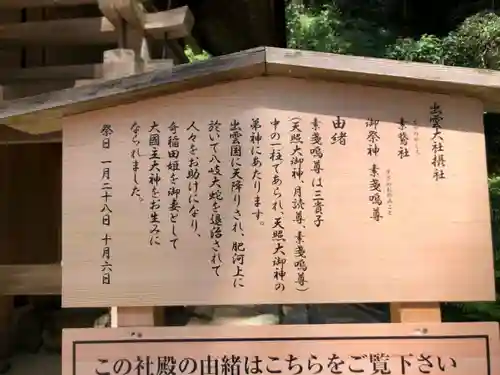 出雲大社摂社
素鵞社
御祭神 素戔嗚尊
由緒
素戔嗚尊は三貴子
(天照大御神、月読尊、素戔嗚尊)
中の一柱であられ、天照大御神の
弟神にあたります。
出雲国に天降りされ、肥河上に
於いて八岐大蛇を退治されて
人々をお助けになり、
奇稲田姫を御妻として
大国主大神をお生みに
なられました。
祭日 一月二十八日 十月六日
この社殿の由緒はこちらをご覧下さい